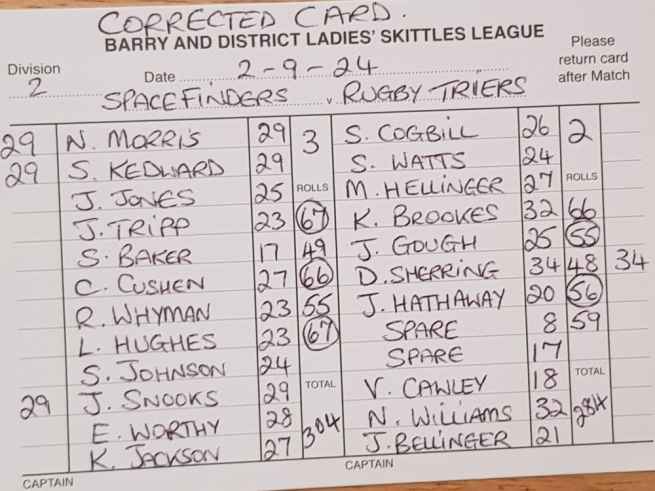 CORRECTED CARD.
BARRY AND DISTRICT LADIES' SKITTLES LEAGUE
Division 2
Date 2-9-24
Please return card after Match
SPACEFINDERS v RUGBY TRIERS
29 N. MORRIS 29 3 S. COGBILL 26 2
29 S. KEDWARD 29 S. WATTS 24
J. JONES 25 ROLLS M. HELLINGER 27 ROLLS
J. TRIPP 23 67 K. BROOKES 32 66
S. BAKER 17 49 J. GOUGH 25 55
C. CUSHEN 27 66 D. SHERRING 34 48 34
R. WHYMAN 23 55 J. HATHAWAY 20 56
L. HUGHES 23 67 SPARE 8 59
S. JOHNSON 24 SPARE 17
29 J. SNOOKS 29 TOTAL V. CAWLEY 18 TOTAL
E. WORTHY 28 304 N. WILLIAMS 32 284
K. JACKSON 27 J. BELLINGER 21
CAPTAIN CAPTAIN